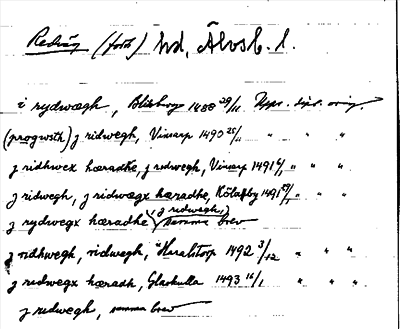 Redväg (forts) hd, Älvsb. l.
i rydwægh, 1488 29/11 Upps. dipl. orig.
(progwsth) j ridwegh, Vinsarp 1490 25/11 " " "
j ridhwex hæradhe, j redwegh, Vinsarp 1491 " " "
j ridwegh, j ridwægx hæradhe, Kölaby 1491 " " "
j rydwegx hæradhe (j redwegh,) samma brev
j ridhwegh, ridwegh, Haralstorp 1492 3/12 " " "
j redwegx hæradh, Glaskulla 1493 16/1 " " "
j redwegh, samma brev